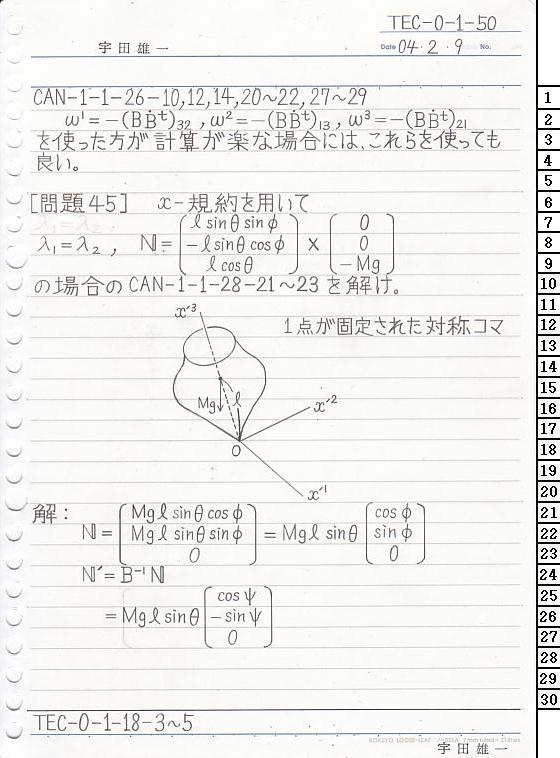 TEC-0-1-50
宇田雄一
Date 04・2・9 No.
CAN-1-1-26-10,12,14,20~22,27~29
ω¹=-(BḂᵗ)₃₂, ω²=-(BḂᵗ)₁₃, ω³=-(BḂᵗ)₂₁
を使った方が計算が楽な場合には、これらを使っても
良い。
[問題45] x-規約を用いて
λ₁=λ₂, ℕ=(ℓ sinθ sinφ
-ℓ sinθ cosφ
ℓ cosθ)×(0
0
-Mg)
の場合のCAN-1-1-28-21~23を解け。
1点が固定された対称コマ
x'³
Mg
ℓ
x'²
O
x'¹
解:
ℕ=(Mgℓ sinθ cosφ
Mgℓ sinθ sinφ
0)=Mgℓ sinθ(cosφ
sinφ
0)
ℕ'=B⁻¹ℕ
=Mgℓ sinθ(cosψ
-sinψ
0)
TEC-0-1-18-3~5
KOKUYO LOOSE-LEAF
宇田雄一
1
2
3
4
5
6
7
8
9
10
11
12
13
14
15
16
17
18
19
20
21
22
23
24
25
26
27
28
29
30